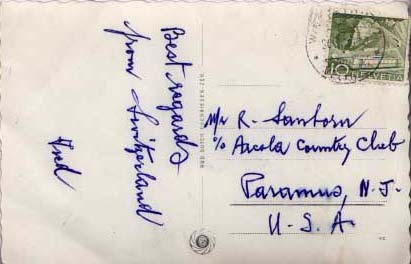 Best regards
from Switzerland
Fred
Mr R. Sanborn
c/o Arcola Country Club
Paramus, N.J.
U.S.A
10
HELVETIA